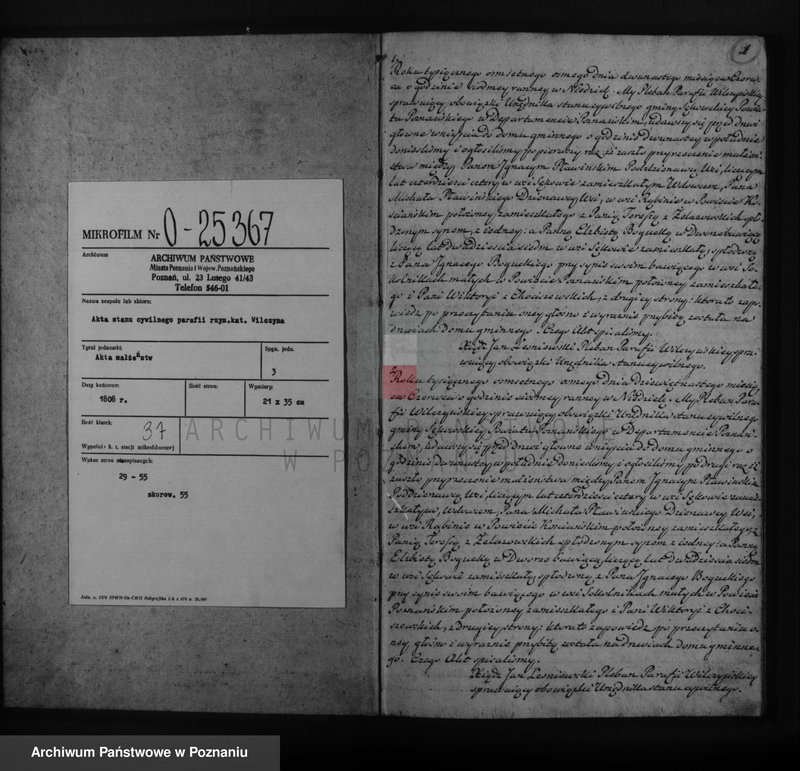 MIKROFILM Nr O-25367
Archiwum
ARCHIWUM PAŃSTWOWE
Miasta Poznania i Wojew. Poznańskiego
Poznań, ul. 23 Lutego 41/43
Telefon 546-01
Nazwa zespołu lub zbioru:
Akta stanu cywilnego parafii rzym.kat. Wilczyna
Tytuł jednostki:
Akta małżeństw
Sygn. jedn.
3
Daty końcowe:
1808 r.
Ilość stron:
Wymiary:
21 x 35 cm
Ilość klatek:
37
Wypełni - k. z. stacji mikrofilmowej
Wykaz stron niezapisanych:
29 - 55
skorow. 55
1
1.
Roku tysiącznego osmsetnego osmego dnia dwunastego miesiąca Czerw
ca o godzinie siodmey ranney w Niedzielę. My Pleban Parafii Wilczyńskiey
sprawuiący obowiązki Urzędnika stanu cywilnego gminy Sękowskiey Powia
tu Poznańskiego w Departamencie Poznańskim, udawszy się przed drzwi
głowne wniyścia do domu gminnego o godzinie dwunastey w południe
donieślismy i ogłosilismy po pierwszy raz iż zaszło przyrzeczenie małżeń
stwa między Panem Ignacym Pławińskim Poddzierżawcą Wsi, liczącym
lat czterdzieści cztery w wsi Sękowie zamieszkałym Wdowcem, Pana
Michała Pławińskiego Dzierżawcy Wsi, w wsi Rąbinie w Powiecie Ko
ściańskim położoney zamieszkałego z Panią Teressą z Żelazowskich spło
dzonym synem, z iedney: a Panną Elżbietą Bogucką w Dworze bawiącą
liczącą lat dwadzieścia siedm w wsi Sękowie zamieszkałą, spłodzoną
z Pana Ignacego Boguckiego przy synie swoim bawiącego w wsi So
kolnikach małych w Powiecie Poznańskim położoney zamieszkałe
go i Pani Wiktoryi z Chociszewskich, z drugiey strony: która to zapo
wiedź po przeczytaniu oney głośno i wyraźnie przybita została na
drzwiach domu gminnego. Czego Akt spisaliśmy.
Xiądz Jan Lesniewski Pleban Parafii Wilczyńskiey spra
wuiący obowiązki Urzędnika stanu cywilnego.
2.
Roku tysiącznego osmsetnego osmego dnia dziewiętnastego miesią
ca Czerwca o godzinie siodmey ranney w Niedzielę. My Pleban Para
fii Wilczyńskiey sprawuiący obowiązki Urzędnika stanu cywilnego
gminy Sękowskiey Powiatu Poznańskiego w Departamencie Poznań
skim, udawszy się przed drzwi głowne wniyścia do domu gminnego o
godzinie dwunastey w południe donieślismy i ogłosilismy po drugi raz iż
zaszło przyrzeczenie małżeństwa między Panem Ignacym Pławińskim
Poddzierżawcą Wsi, liczącym lat czterdzieści cztery w wsi Sękowie zamie
szkałym, Wdowcem, Pana Michała Pławińskiego Dzierżawcy Wsi,
w wsi Rąbinie w Powiecie Kościańskim położoney zamieszkałego z
Panią Teressą z Żelazowskich spłodzonym synem z iedney: a Panną
Elżbietą Bogucką w Dworze bawiącą, liczącą lat dwadzieścia siedm
w wsi Sękowie zamieszkałą, spłodzoną z Pana Ignacego Boguckiego
przy synie swoim bawiącego w wsi Sokolnikach małych w Powiecie
Poznańskim położoney zamieszkałego i Pani Wiktoryi z Choci
szewskich, z drugiey strony: która to zapowiedź po przeczytaniu o
ney, głośno i wyraźnie przybita została na drzwiach domu gminne
go. Czego Akt spisaliśmy.
Xiądz Jan Lesniewski Pleban Parafii Wilczyńskiey
sprawuiący obowiązki Urzędnika stanu cywilnego.
Archiwum Państwowe w Poznaniu